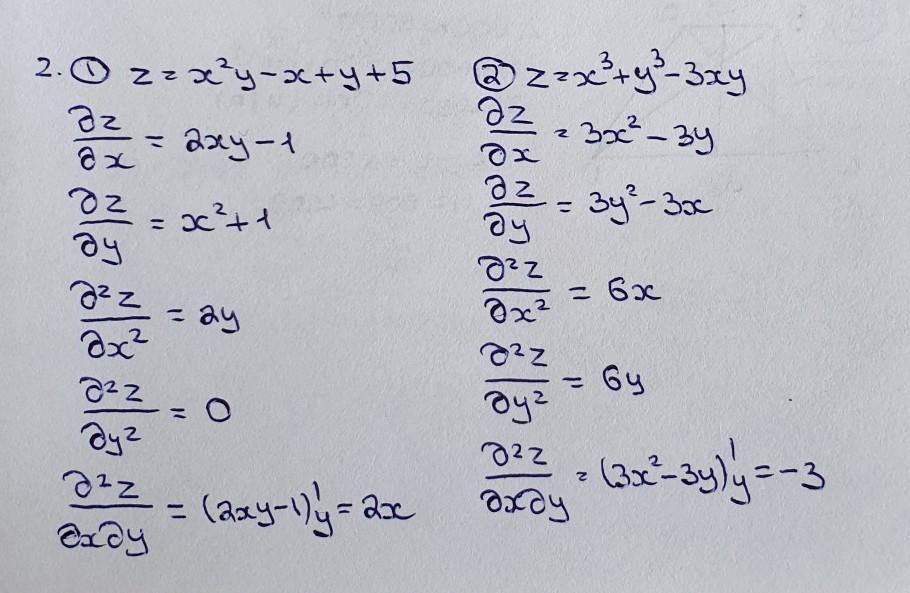 2. ① z = x²y - x + y + 5
∂z/∂x = 2xy - 1
∂z/∂y = x² + 1
∂²z/∂x² = 2y
∂²z/∂y² = 0
∂²z/∂x∂y = (2xy - 1)'y = 2x
② z = x³ + y³ - 3xy
∂z/∂x = 3x² - 3y
∂z/∂y = 3y² - 3x
∂²z/∂x² = 6x
∂²z/∂y² = 6y
∂²z/∂x∂y = (3x² - 3y)'y = -3